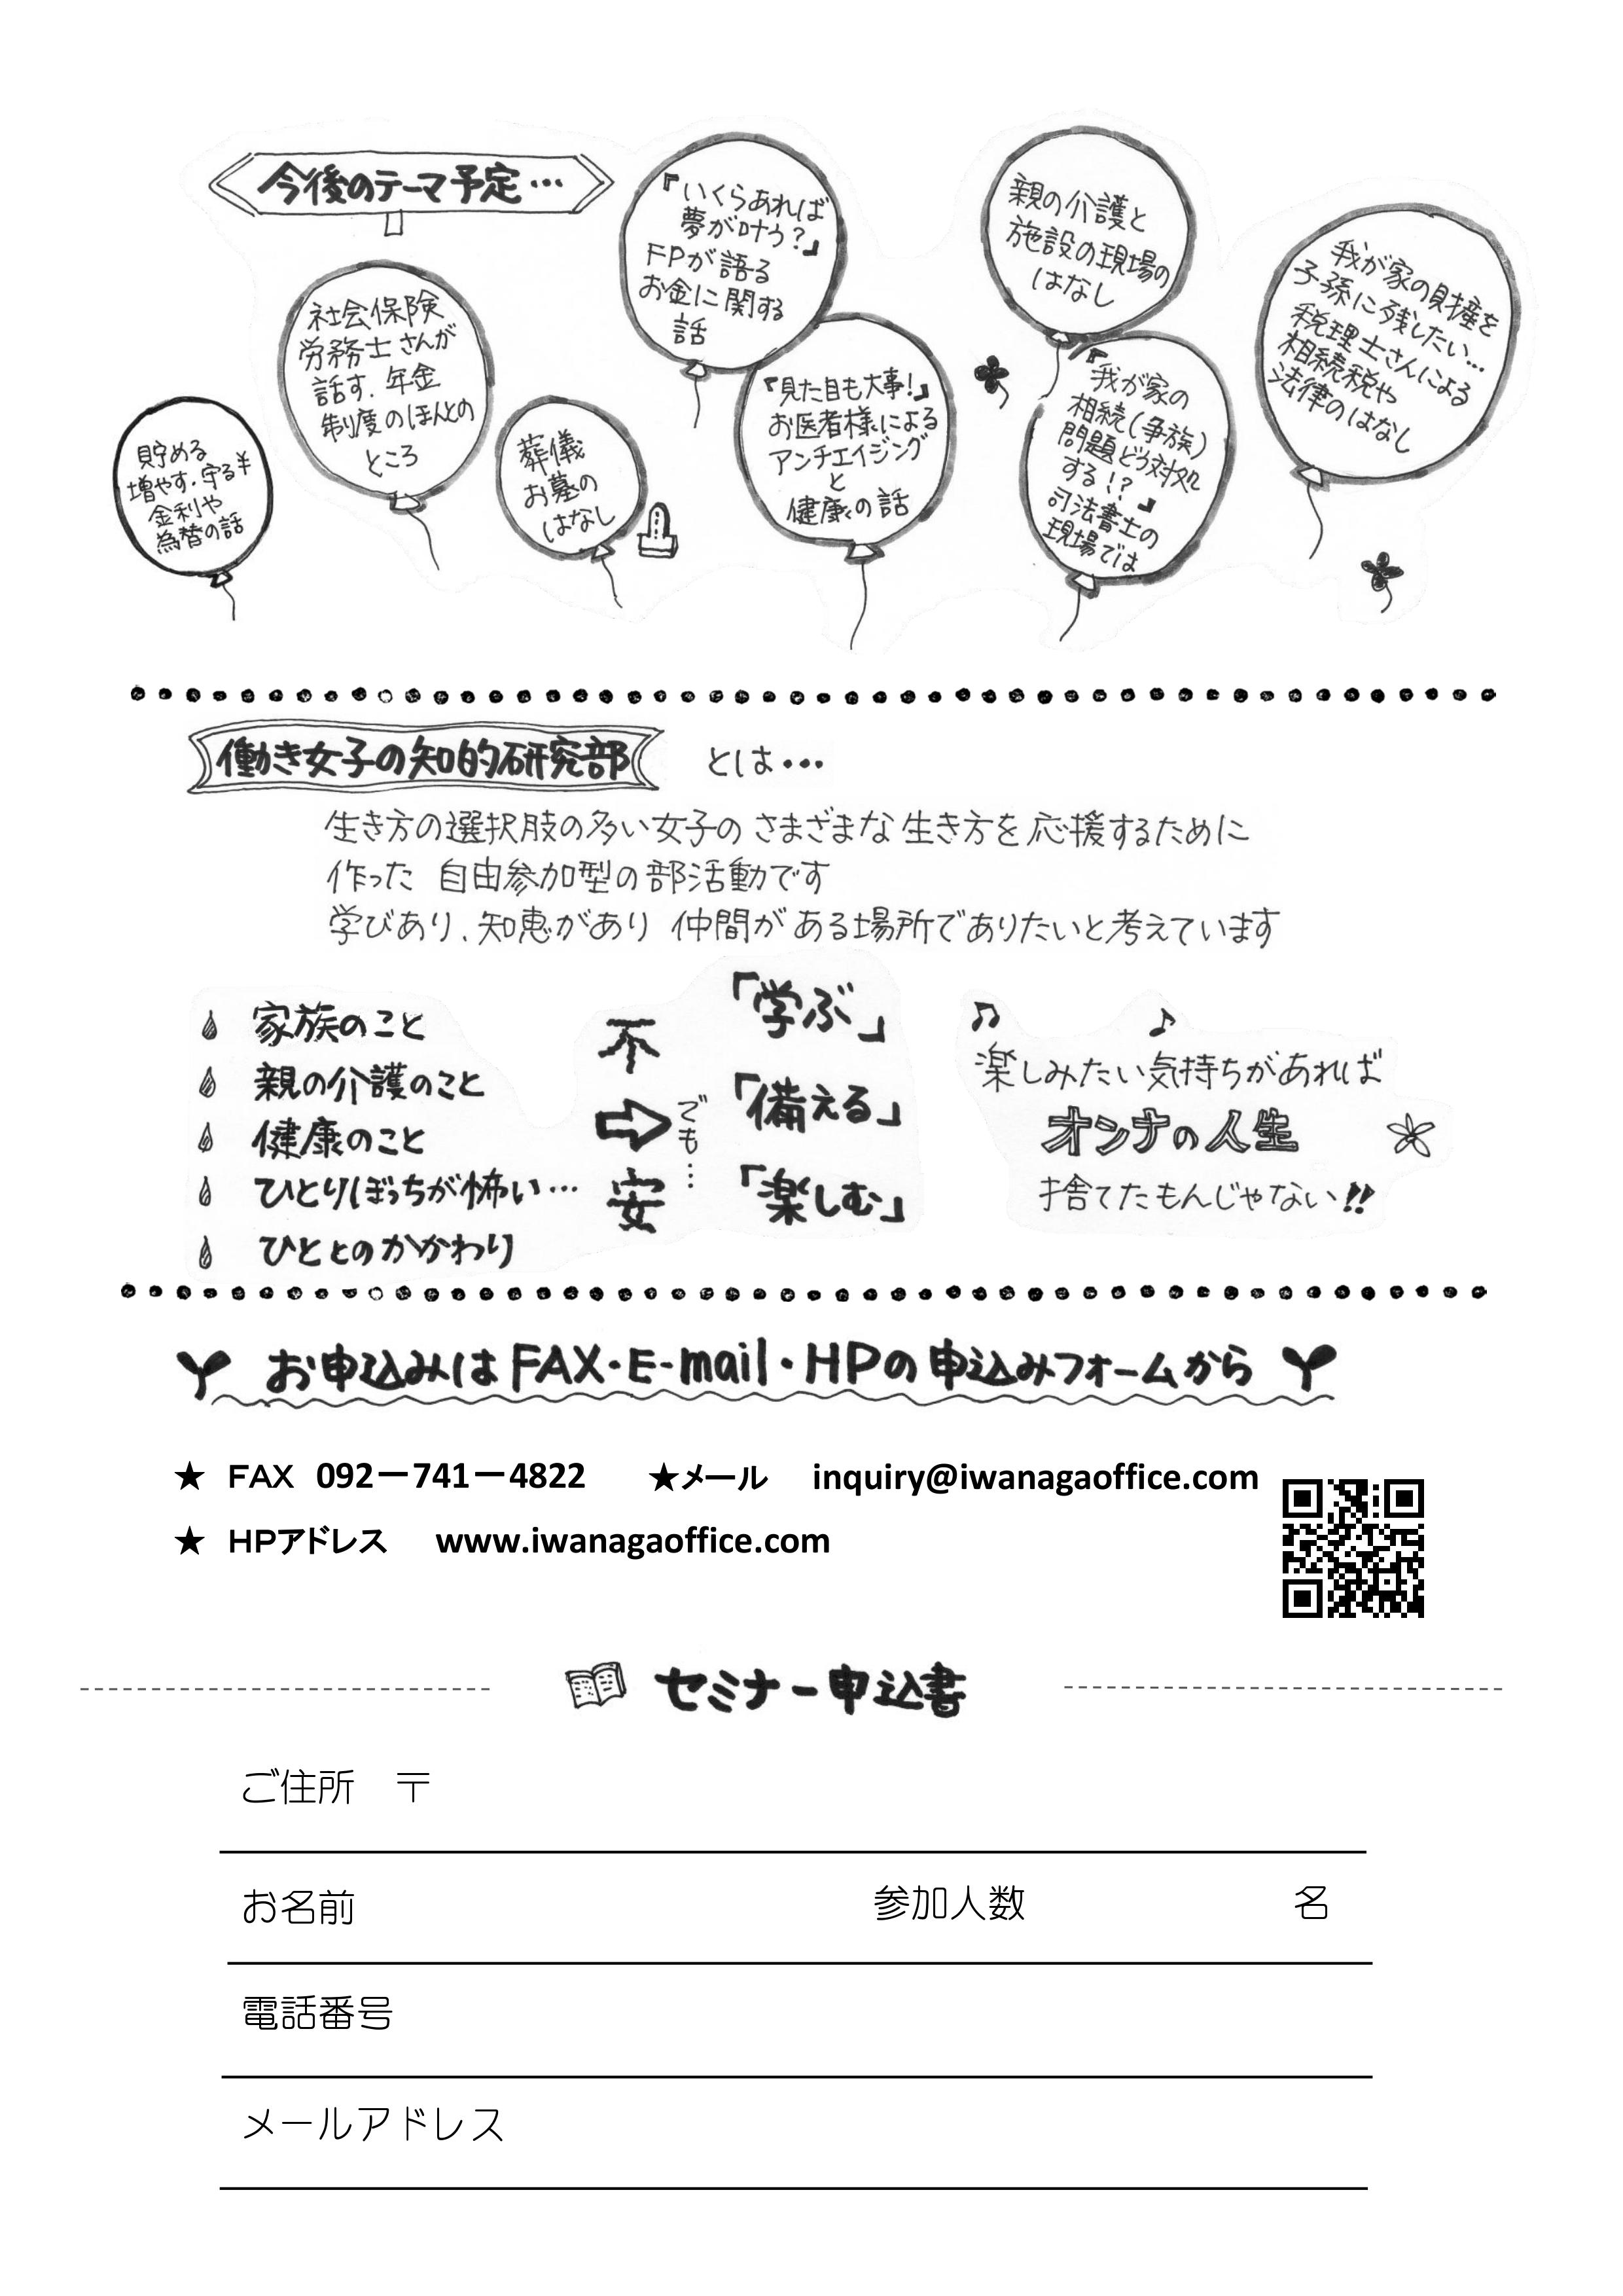 今後のテーマ予定…
貯める
増やす.守る¥
金利や
為替の話
社会保険
労務士さんが
話す.年金
制度のほんとの
ところ
葬儀
お墓の
はなし
『いくらあれば
夢が叶う?』
FPが語る
お金に関する
話
『見た目も大事!』
お医者様による
アンチエイジング
と
健康の話
親の介護と
施設の現場の
はなし
『我が家の
相続(争族)
問題どう対処
する!?』
司法書士の
現場では
我が家の財産を
子孫に残したい…
税理士さんによる
相続税や
法律のはなし
働き女子の知的研究部 とは…
生き方の選択肢の多い女子の さまざまな生き方を応援するために
作った 自由参加型の部活動です
学びあり、知恵があり 仲間がある場所でありたいと考えています
家族のこと
親の介護のこと
健康のこと
ひとりぼっちが怖い…
ひととのかかわり
不
安
でも…
「学ぶ」
「備える」
「楽しむ」
楽しみたい気持ちがあれば
オンナの人生
捨てたもんじゃない!!
お申込みはFAX・E-mail・HPの申込みフォームから
★ FAX 092ー741ー4822 ★メール inquiry@iwanagaoffice.com
★ HPアドレス www.iwanagaoffice.com
セミナー申込書
ご住所 〒
お名前 参加人数 名
電話番号
メールアドレス